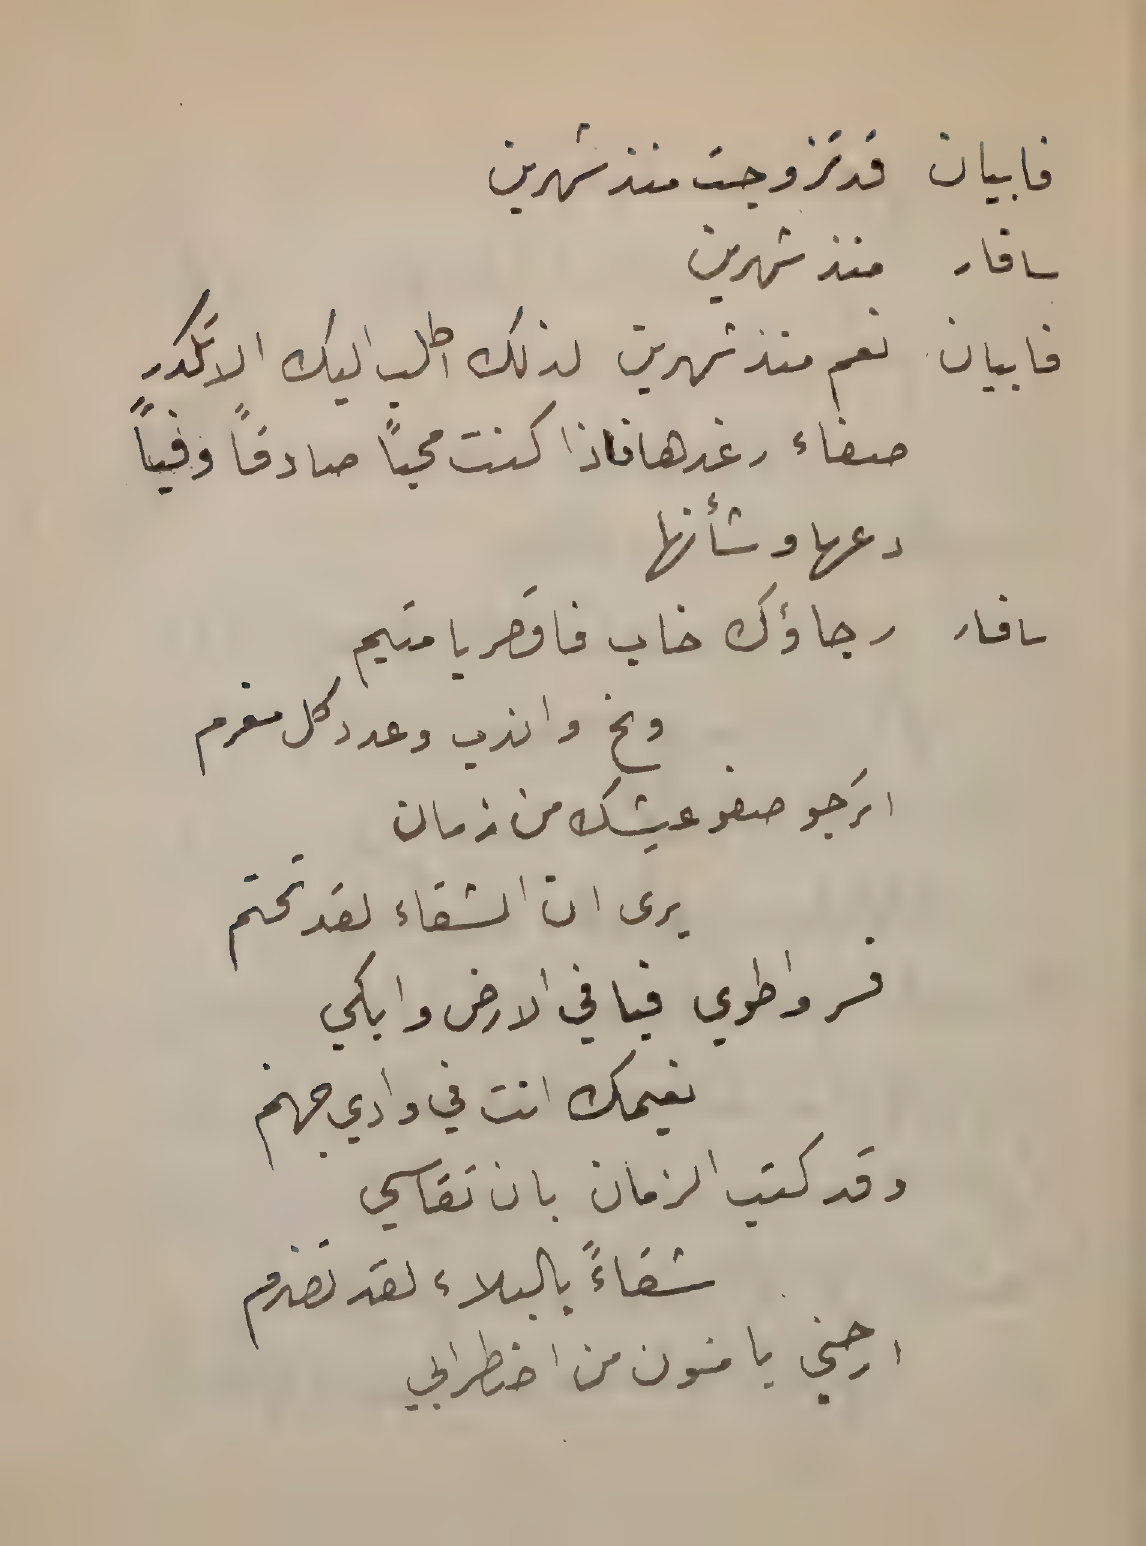 فابيان قد تزوجت منذ شهرين
سافار منذ شهرين
فابيان نعم منذ شهرين لذلك اطلب اليك الا تكدر
صفاء رغدها فاذا كنت محباً صادقاً وفياً
دعها وشأنها
سافار رجاؤك خاب فاقصر يا متيم
ونح واندب وعدد كل مغرم
اترجو صفو عيشك من زمان
يرى ان الشقاء لقد تحتم
فسر واطوي فيافي الارض وابكي
نعيمك انت في وادي جهنم
وقد كتب الزمان بان تقاسي
شقاءً بالبلاء لقد تضرم
ارحيني يا منون من اضطرابي